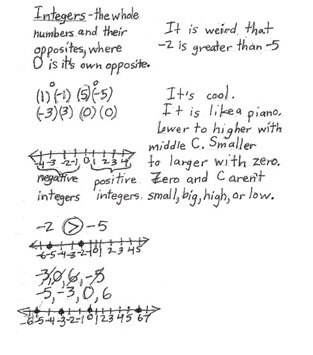 Integers - the whole
numbers and their
opposites, where
0 is its own opposite.
It is weird that
-2 is greater than -5
0 0
(1)(-1) (5)(-5)
(-3)(3) (0)(0)
-4 -3 -2 -1 0 1 2 3 4
negative positive
integers integers
It's cool.
It is like a piano.
Lower to higher with
middle C. Smaller
to larger with zero.
Zero and C aren't
small, big, high, or low.
-2 > -5
-6 -5 -4 -3 -2 -1 0 1 2 3 4 5
-3, 0, 6, -5
-5, -3, 0, 6
-6 -5 -4 -3 -2 -1 0 1 2 3 4 5 6 7